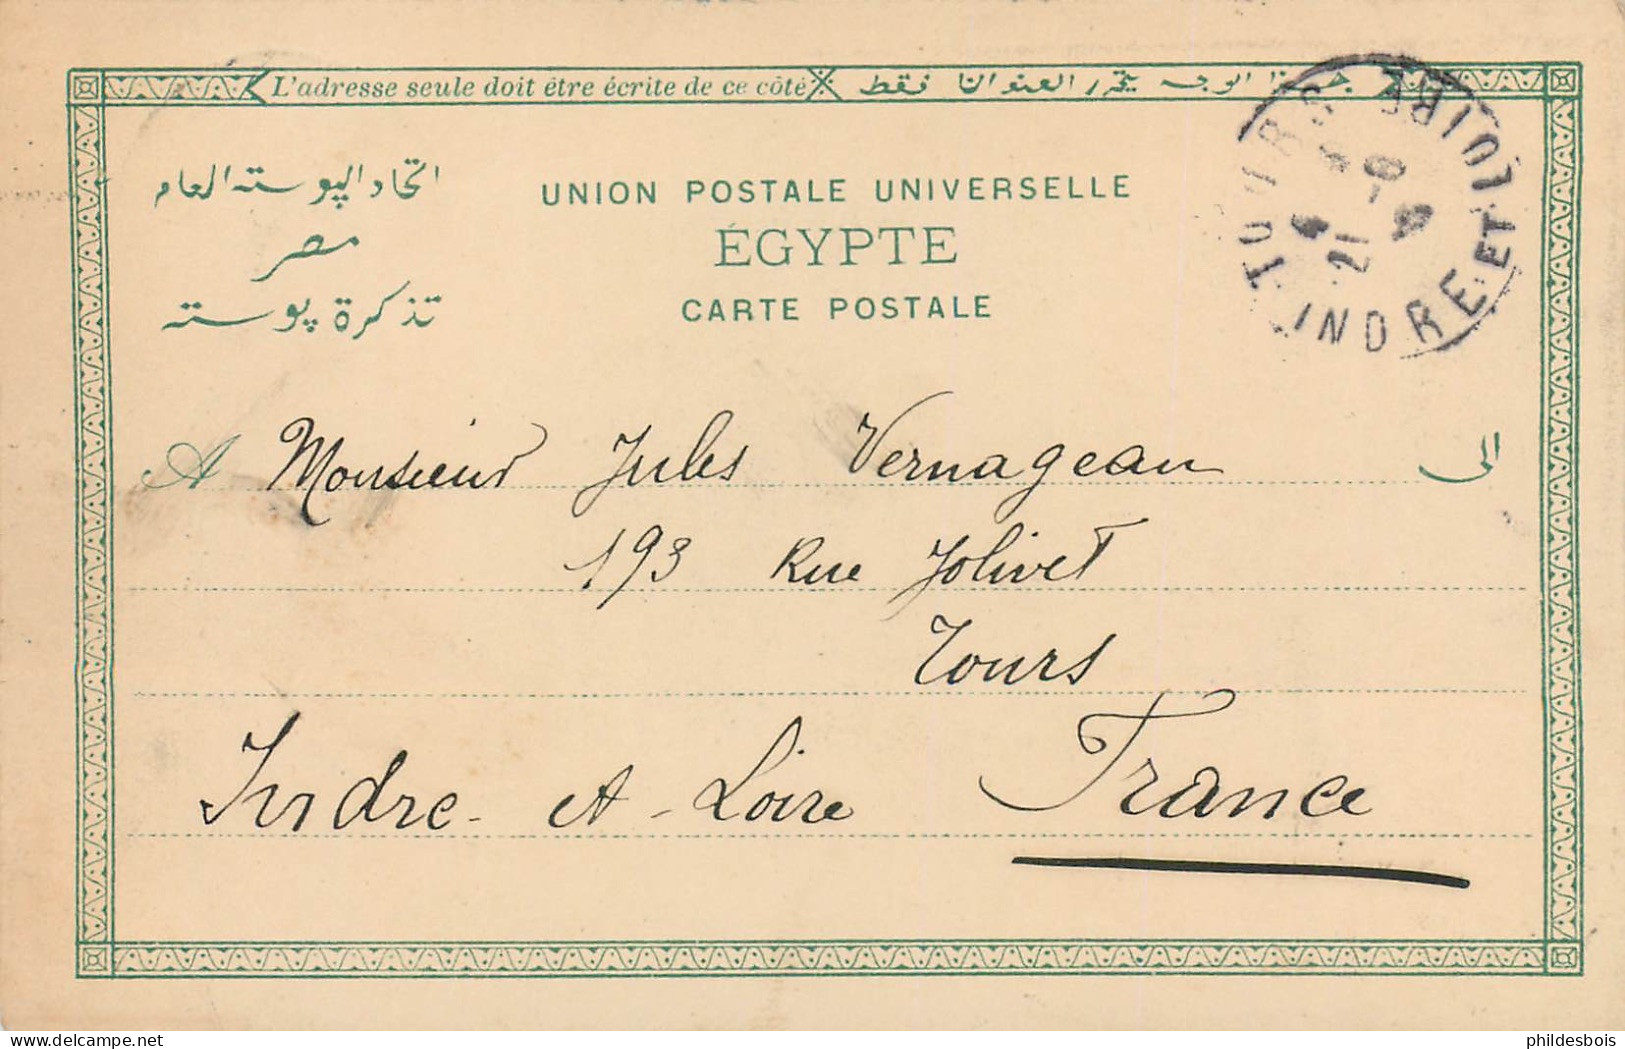 L'adresse seule doit être écrite de ce côté العنوان فقط
اتحاد البوسته العام
UNION POSTALE UNIVERSELLE
مصر
ÉGYPTE
تذكرة بوسته
CARTE POSTALE
TOURS
INDRE ET LOIRE
21
A Monsieur Jules Vernageau الى
193 Rue Jolivet
Tours
Indre - et - Loire France
phildesbois